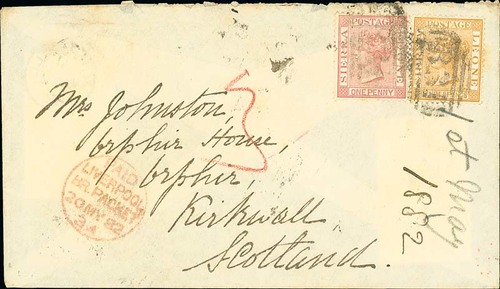 POSTAGE
SIERRA
ONE PENNY
POSTAGE
LEONE
Mrs Johnston,
Orphir House,
Orphir,
Kirkwall,
Scotland.
3
PAID
LIVERPOOL
BR. PACKET
20 MY 82
3A
1st May
1882